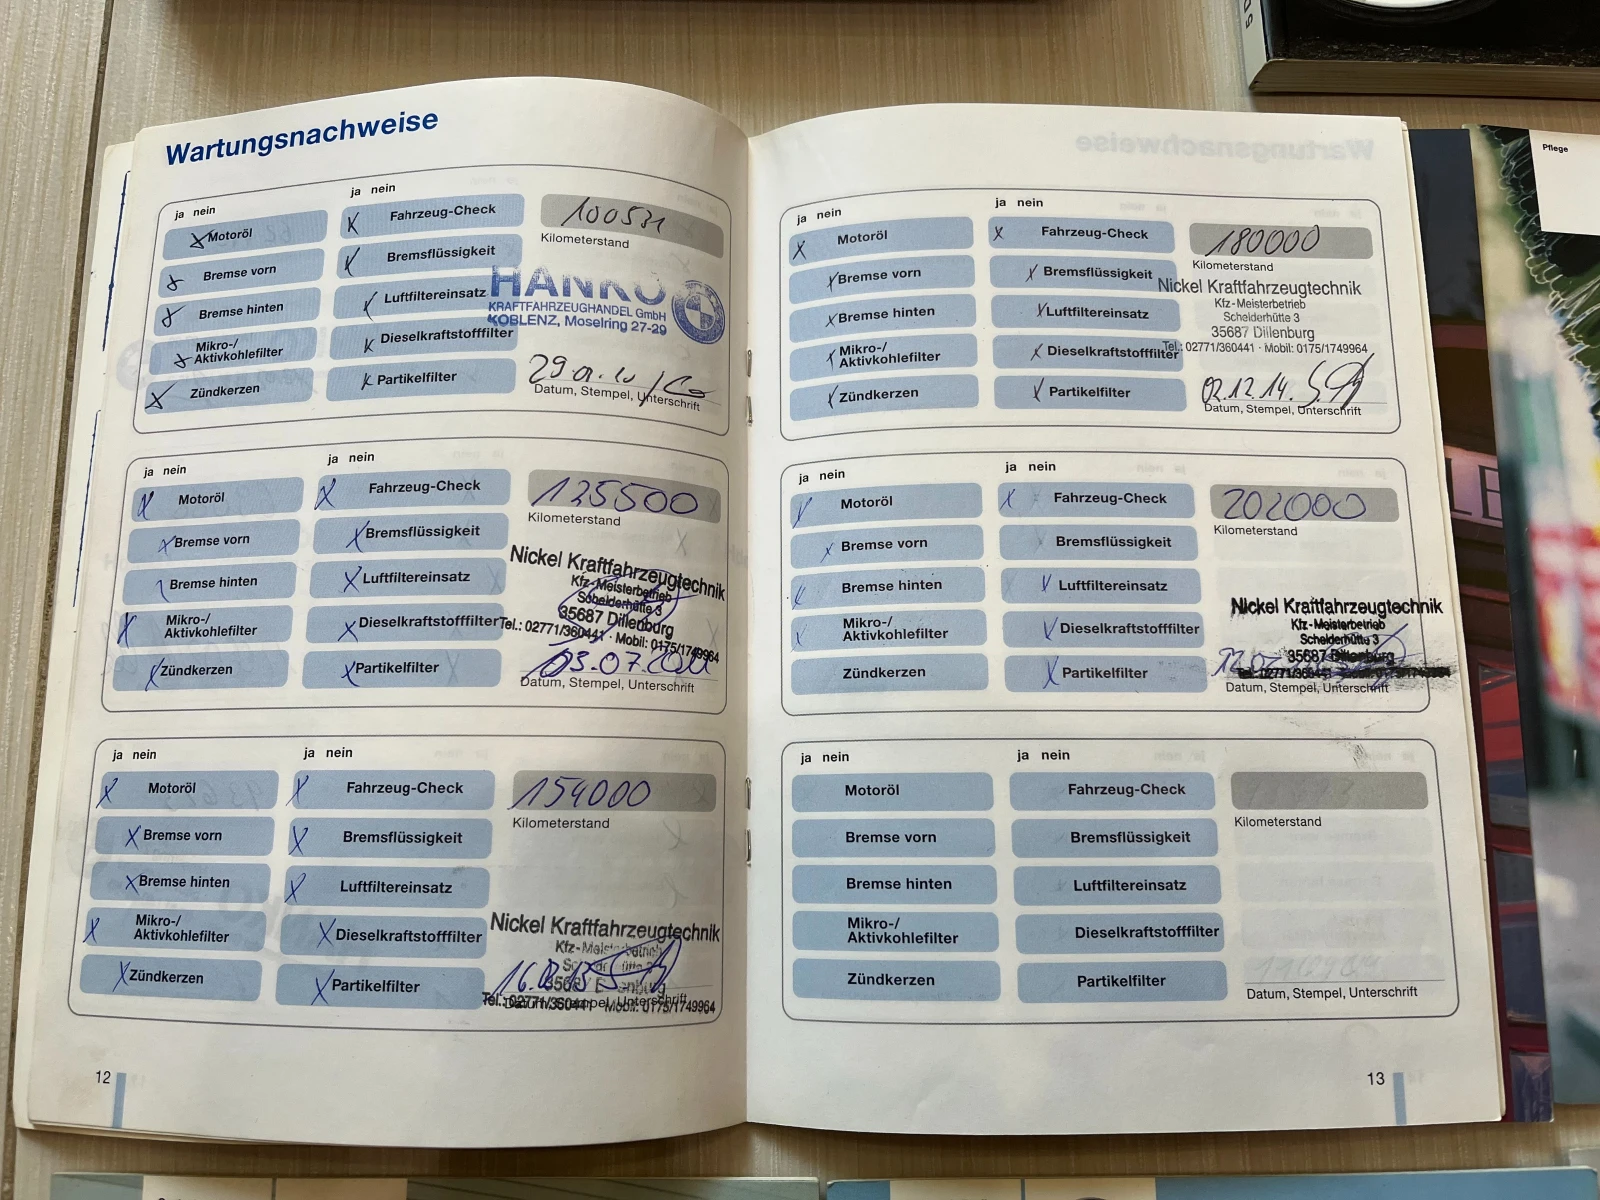 Wartungsnachweise
ja nein
ja nein
Motoröl
Fahrzeug-Check
100531
Kilometerstand
Bremse vorn
Bremsflüssigkeit
Bremse hinten
Luftfiltereinsatz
Mikro-/
Aktivkohlefilter
Dieselkraftstofffilter
Zündkerzen
Partikelfilter
HANKO
KRAFTFAHRZEUGHANDEL GmbH
KOBLENZ, Moselring 27-29
29.01.10
Datum, Stempel, Unterschrift
ja nein
ja nein
Motoröl
Fahrzeug-Check
125500
Kilometerstand
Bremse vorn
Bremsflüssigkeit
Bremse hinten
Luftfiltereinsatz
Mikro-/
Aktivkohlefilter
Dieselkraftstofffilter
Zündkerzen
Partikelfilter
Nickel Kraftfahrzeugtechnik
Kfz-Meisterbetrieb
Schelderhütte 3
35687 Dillenburg
Tel.: 02771/360441 · Mobil: 0175/1749964
03.07.
Datum, Stempel, Unterschrift
ja nein
ja nein
Motoröl
Fahrzeug-Check
154000
Kilometerstand
Bremse vorn
Bremsflüssigkeit
Bremse hinten
Luftfiltereinsatz
Mikro-/
Aktivkohlefilter
Dieselkraftstofffilter
Zündkerzen
Partikelfilter
Nickel Kraftfahrzeugtechnik
Kfz-Meisterbetrieb
Tel.: 02771/360441 Mobil: 0175/1749964
Datum, Stempel, Unterschrift
12
ja nein
ja nein
Motoröl
Fahrzeug-Check
180000
Kilometerstand
Bremse vorn
Bremsflüssigkeit
Bremse hinten
Luftfiltereinsatz
Mikro-/
Aktivkohlefilter
Dieselkraftstofffilter
Zündkerzen
Partikelfilter
Nickel Kraftfahrzeugtechnik
Kfz-Meisterbetrieb
Schelderhütte 3
35687 Dillenburg
Tel.: 02771/360441 · Mobil: 0175/1749964
02.12.14.
Datum, Stempel, Unterschrift
ja nein
ja nein
Motoröl
Fahrzeug-Check
202000
Kilometerstand
Bremse vorn
Bremsflüssigkeit
Bremse hinten
Luftfiltereinsatz
Mikro-/
Aktivkohlefilter
Dieselkraftstofffilter
Zündkerzen
Partikelfilter
Nickel Kraftfahrzeugtechnik
Kfz-Meisterbetrieb
Schelderhütte 3
35687 Dillenburg
Datum, Stempel, Unterschrift
ja nein
ja nein
Motoröl
Fahrzeug-Check
Kilometerstand
Bremse vorn
Bremsflüssigkeit
Bremse hinten
Luftfiltereinsatz
Mikro-/
Aktivkohlefilter
Dieselkraftstofffilter
Zündkerzen
Partikelfilter
Datum, Stempel, Unterschrift
13
Pflege